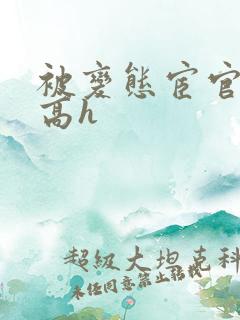 被变态宦官
高h
超级大坦克科
未经同意禁止转载